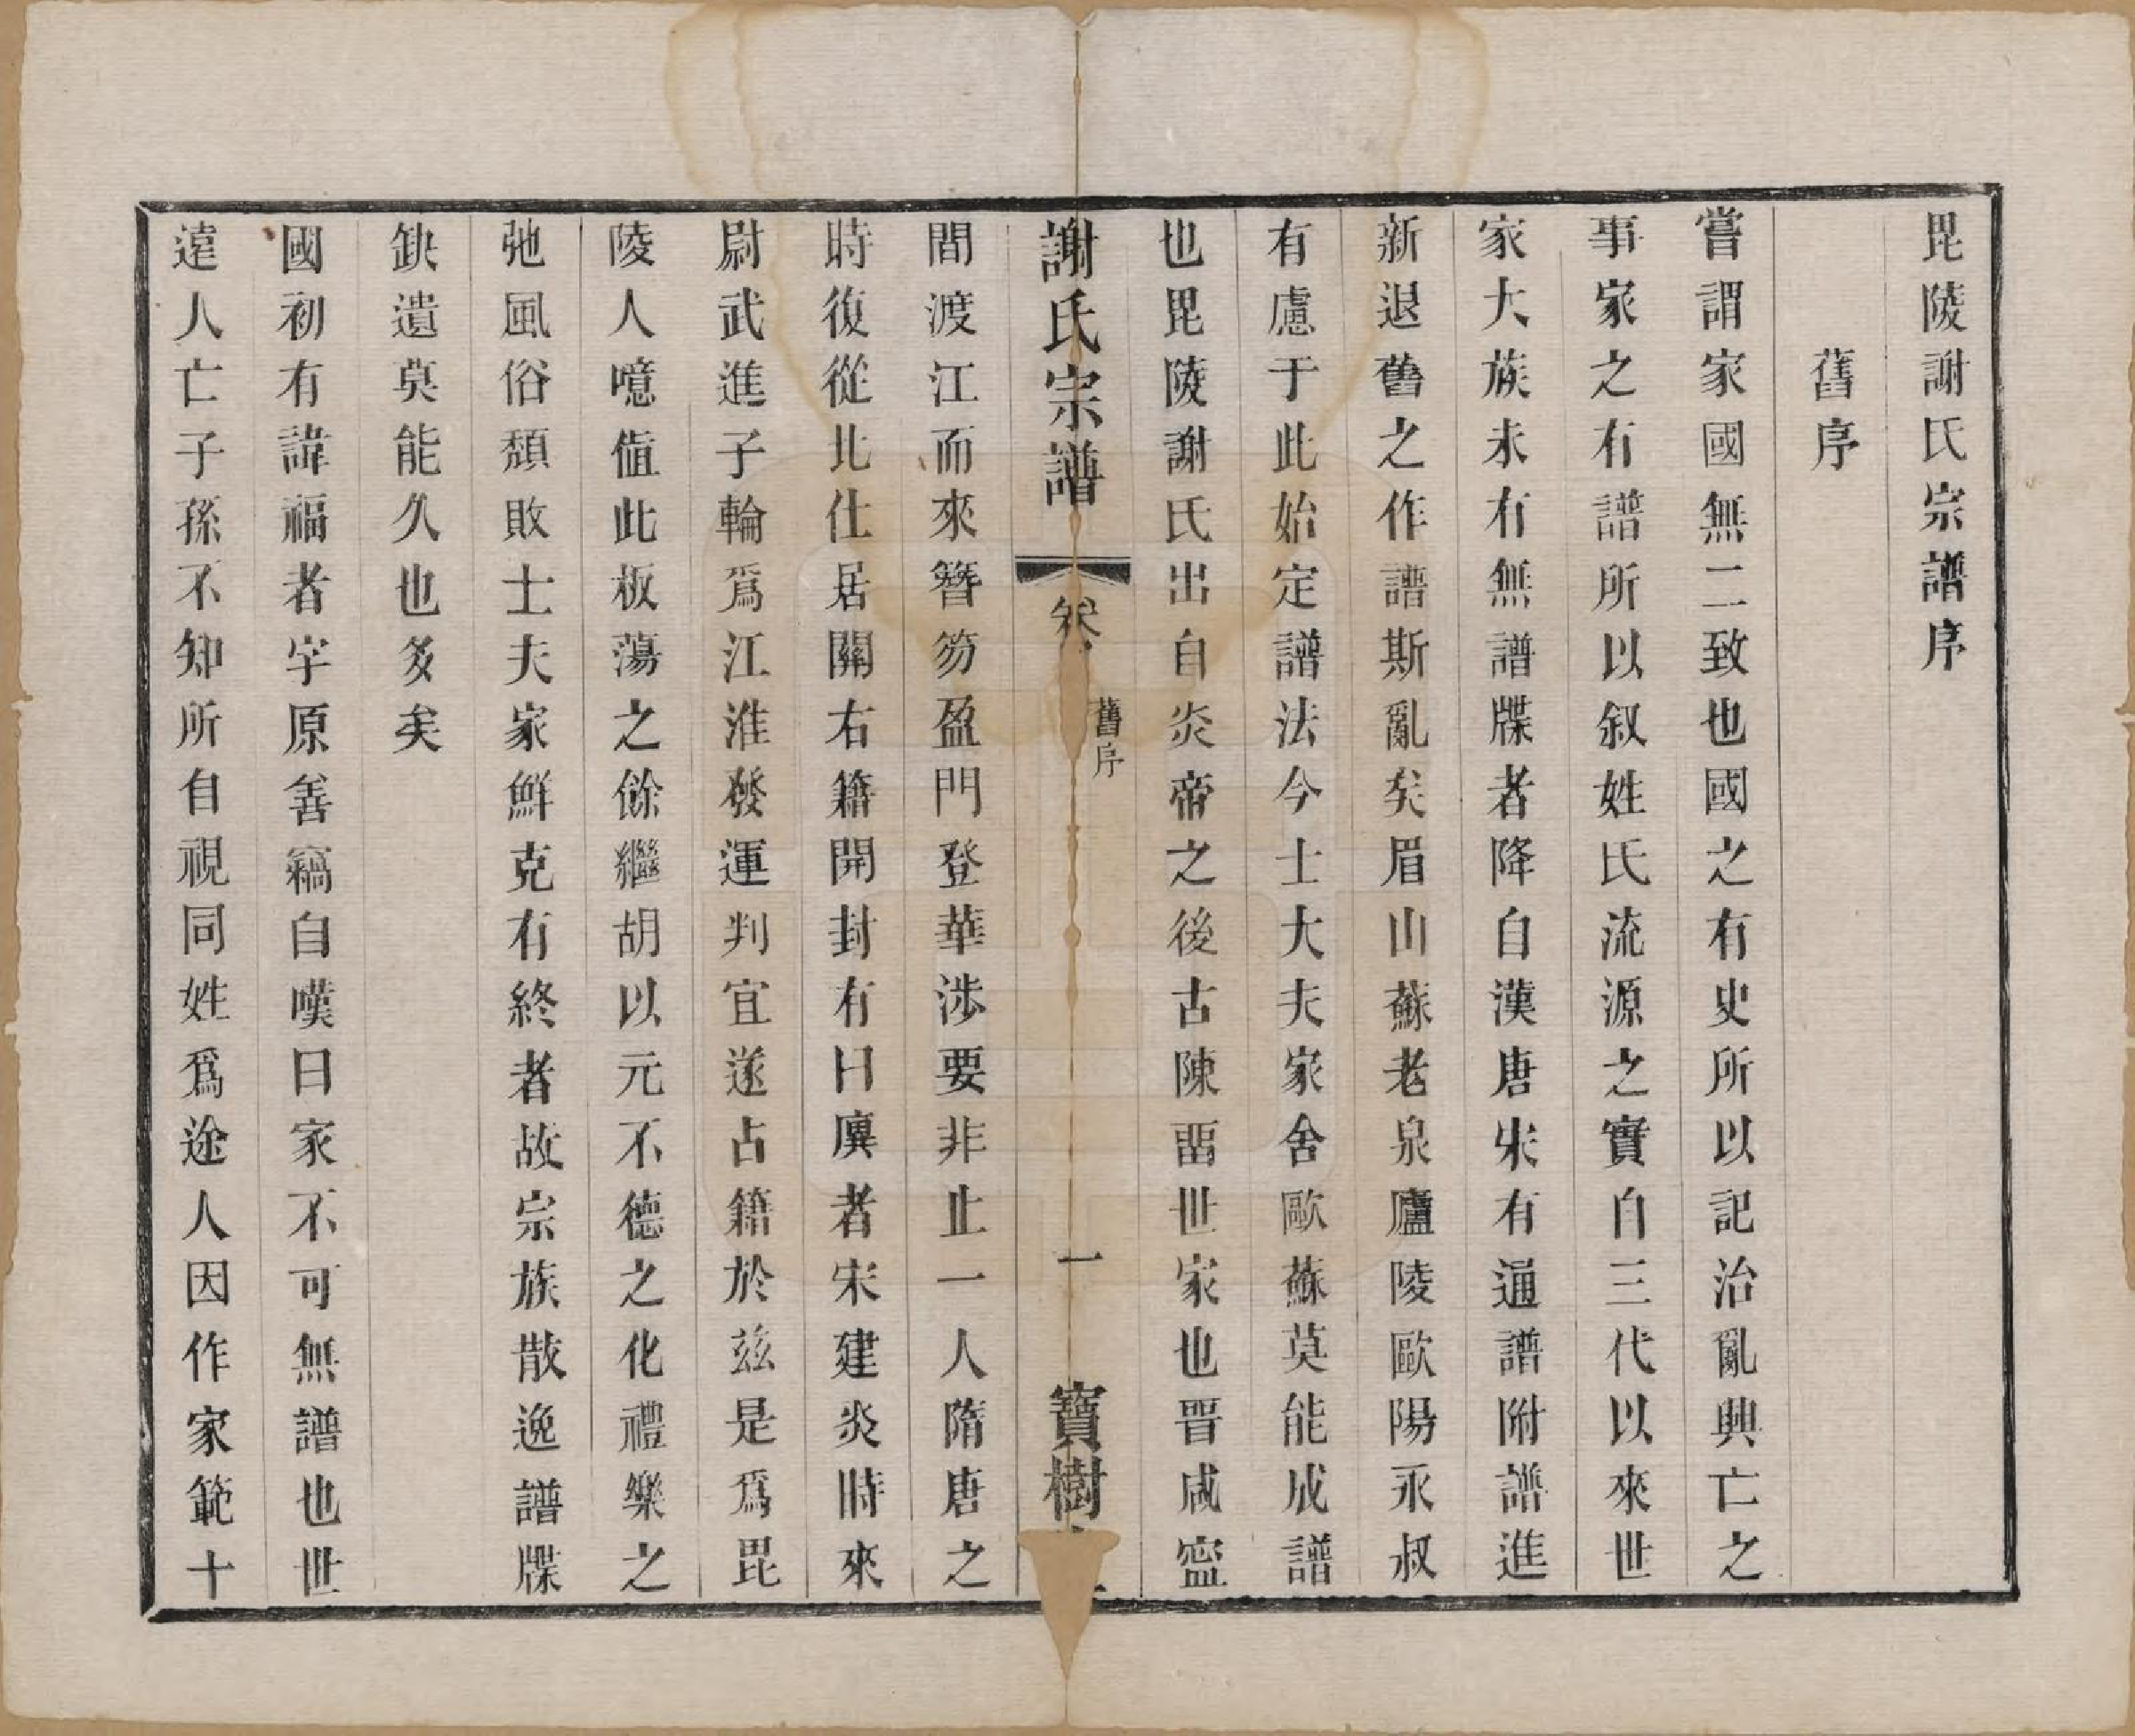 毘陵謝氏宗譜序
舊序
嘗謂家國無二致也國之有史所以記治亂興亡之
事家之有譜所以叙姓氏流源之實自三代以來世
家大族未有無譜牒者降自漢唐宋有通譜附譜進
新退舊之作譜斯亂矣眉山蘇老泉廬陵歐陽永叔
有慮于此始定譜法今士大夫家舍歐蘇莫能成譜
也毘陵謝氏出自炎帝之後古陳畱世家也晋咸寍
謝氏宗譜
卷
舊序
一
寶樹
間渡江而來簪笏盈門登華涉要非止一人隋唐之
時復從北仕居關右籍開封有曰廙者宋建炎時來
尉武進子輪爲江淮發運判宜遂占籍於兹是爲毘
陵人噫值此板蕩之餘繼胡以元不德之化禮樂之
弛風俗頹敗士夫家鮮克有終者故宗族散逸譜牒
缺遺莫能久也多矣
國初有諱福者字原善竊自嘆曰家不可無譜也世
遠人亡子孫不知所自視同姓爲途人因作家範十